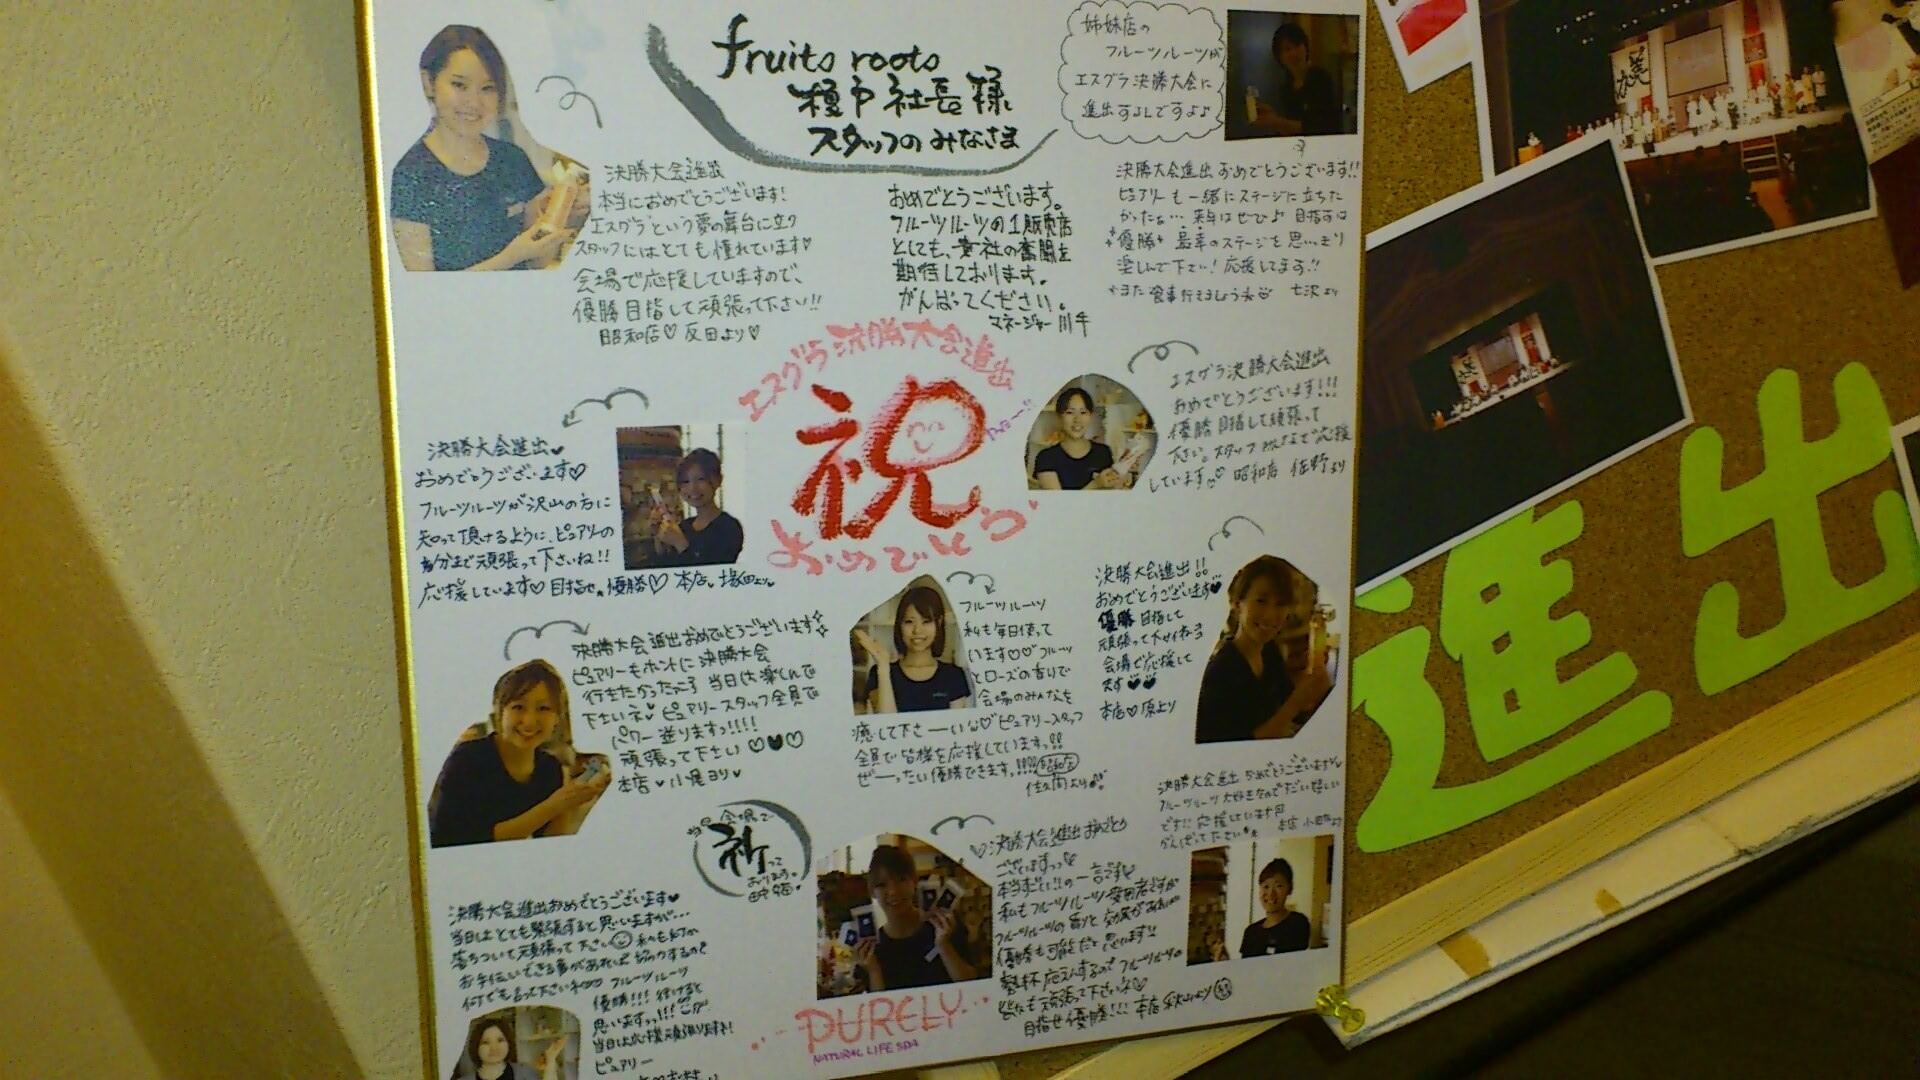 fruits roots
社長様
スタッフのみなさま
姉妹店の
フルーツルーツが
エスグラ決勝大会に
進出するしですよ♪
決勝大会進出
本当におめでとうございます!
エスグラという夢の舞台に立つ
スタッフにはとても憧れています♡
会場で応援していますので、
優勝目指して頑張って下さい!!
昭和店♡反田より♡
おめでとうございます。
フルーツルーツの1販売店
としても、貴社の奮闘を
期待しております。
がんばってください。
マネージャー
決勝大会進出おめでとうございます!!
ピュアリーも一緒にステージに立ちた
かったな… 来年はぜひ♪ 目指すは
優勝 最幸のステージを思いっきり
楽しんで下さい!応援してます!!
また食事行きましょうね 七沢より
エスグラ決勝大会進出
祝
おめでとう
エスグラ決勝大会進出
おめでとうございます!!!
優勝目指して頑張って
下さい。スタッフみんなで応援
しています 昭和店 佐野より
決勝大会進出♥
おめでとうございます♡
フルーツルーツが沢山の方に
知って頂けるように、ピュアリーの
分まで頑張って下さいね!!
応援しています♡目指せ優勝♡ 本店 塚田より
決勝大会進出おめでとうございます
ピュアリーもホントに決勝大会
行きたかったっス 当日は楽しんで
下さいネ♥ピュアリースタッフ全員で
パワー送りますっ!!!!
頑張って下さい♡♥♡
本店♥小尾ヨリ♥
フルーツルーツ
私も毎日使って
います♡♡フルーツ
とローズの香りで
会場のみんなを
癒して下さーい♡ピュアリースタッフ
全員で皆様を応援しています!!
ぜーったい優勝できます!!!! 昭和店
佐久間より
決勝大会進出!!
おめでとうございます♥
優勝目指して
頑張って下さいね
会場で応援して
ます♥♥
本店♡原より
決勝大会進出おめでとうございます
フルーツルーツ大好きなので
がんばって下さい
会場で
祈って
おります。
決勝大会進出おめでとうございます♥
当日はとても緊張すると思いますが…
落ちついて頑張って下さい 私も何か
お手伝いできる事があれば
何でも言って下さい フルーツルーツ
優勝!!! 行けると
思いますっっ!!!
ピュアリー
♡決勝大会進出おめでとう
ございますっっ
本当すごい!!の一言です
私もフルーツルーツ愛用者ですが
フルーツルーツの香りと効果があれば
優勝も可能だと思います!!
フルーツルーツの
頑張って下さいネ♡
目指せ優勝!!! 本店 秋山より
PURELY
NATURAL LIFE SPA
進出